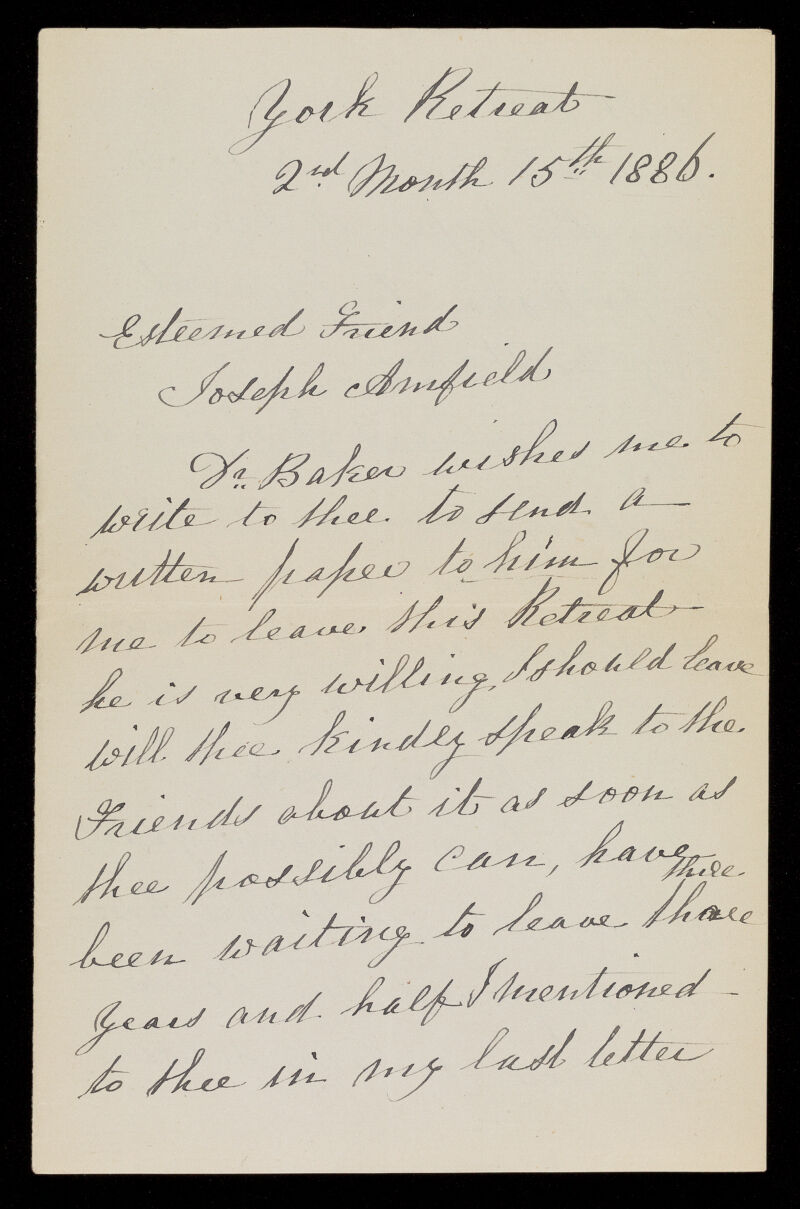 York Retreat
2nd Month 15th 1886.
Esteemed Friend
Joseph Armfield
Dr. Baker wishes me to
write to thee to send a
written paper to him for
me to leave this Retreat
he is very willing I should leave
will thee kindly speak to the
Friends about it as soon as
thee possibly can, have
three
been waiting to leave
years and half I mentioned
to thee in my last letter